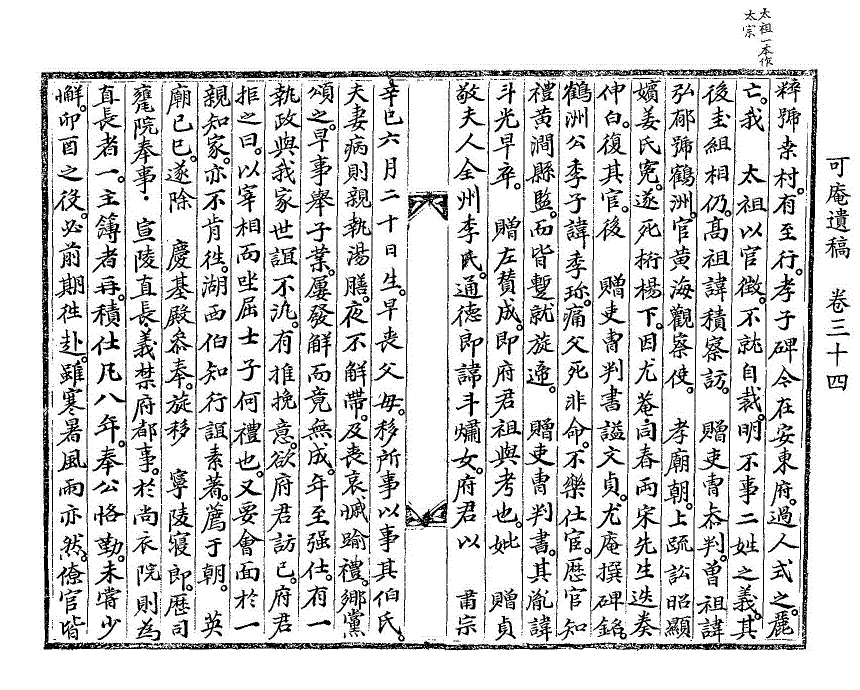 太祖一本作
太宗
可庵遺稿 卷三十四
粹號桒村。有至行。孝子碑今在安東府。過人式之。麗
亡。我 太祖以官徵。不就自裁。明不事二姓之義。其
後圭組相仍。高祖諱積察訪。 贈吏曹叅判。曾祖諱
弘郁號鶴洲。官黃海觀察使。 孝廟朝。上疏訟昭顯
嬪姜氏冤。遂死桁楊下。因尤菴同春兩宋先生迭奏
伸白。復其官。後 贈吏曹判書謚文貞。尤庵撰碑銘。
鶴洲公季子諱季珎。痛父死非命。不樂仕官。歷官知
禮黃澗縣監。而皆蹔就旋遞。 贈吏曹判書。其胤諱
斗光早卒。 贈左贊成。卽府君祖與考也。妣 贈貞
敬夫人全州李氏。通德郎諱斗女。府君以 肅宗
辛巳六月二十日生。早喪父母。移所事以事其伯氏。
夫妻病則親執湯膳。夜不解帶。及喪哀慽踰禮。鄉黨
頌之。早事擧子業。屢發解而竟無成。年至强仕。有一
執政與我家世誼不泛。有推挽意。欲府君訪已。府君
拒之曰。以宰相而坐屈士子何禮也。又要會面於一
親知家。亦不肯徃。湖西伯知行誼素著。薦于朝。 英
廟己巳。遂除 慶基殿叅奉。旋移 寧陵寢郎。歷司
甕院奉事, 宣陵直長, 義禁府都事。於尚衣院則爲
直長者一。主簿者再。積仕凡八年。奉公恪勤。未嘗少
懈。卯酉之役。必前期徃赴。雖寒暑風雨亦然。僚官皆